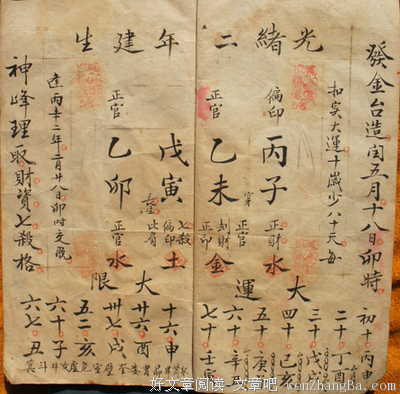 發金台造閏五月十八日卯時
扣实大運十歲少八十天每
逢丙辛二年二月廿八日卯時交脱
神峰理取財資七殺格
光緒二年建生
偏印 丙子 正財 水
正官 乙未 正官 刦財 正印 金
戊寅 七殺 偏印 比肩 土
正官 乙卯 正官 水
大運
初十 丙申
二十 丁酉
三十 戊戌
四十 己亥
五十 庚子
六十 辛丑
七十 壬寅
大限
十六 申
廿六 酉
卅七 戌
五二 亥
六十 子
六七 丑
好文章阅读-文章吧-wenZhangBa.com